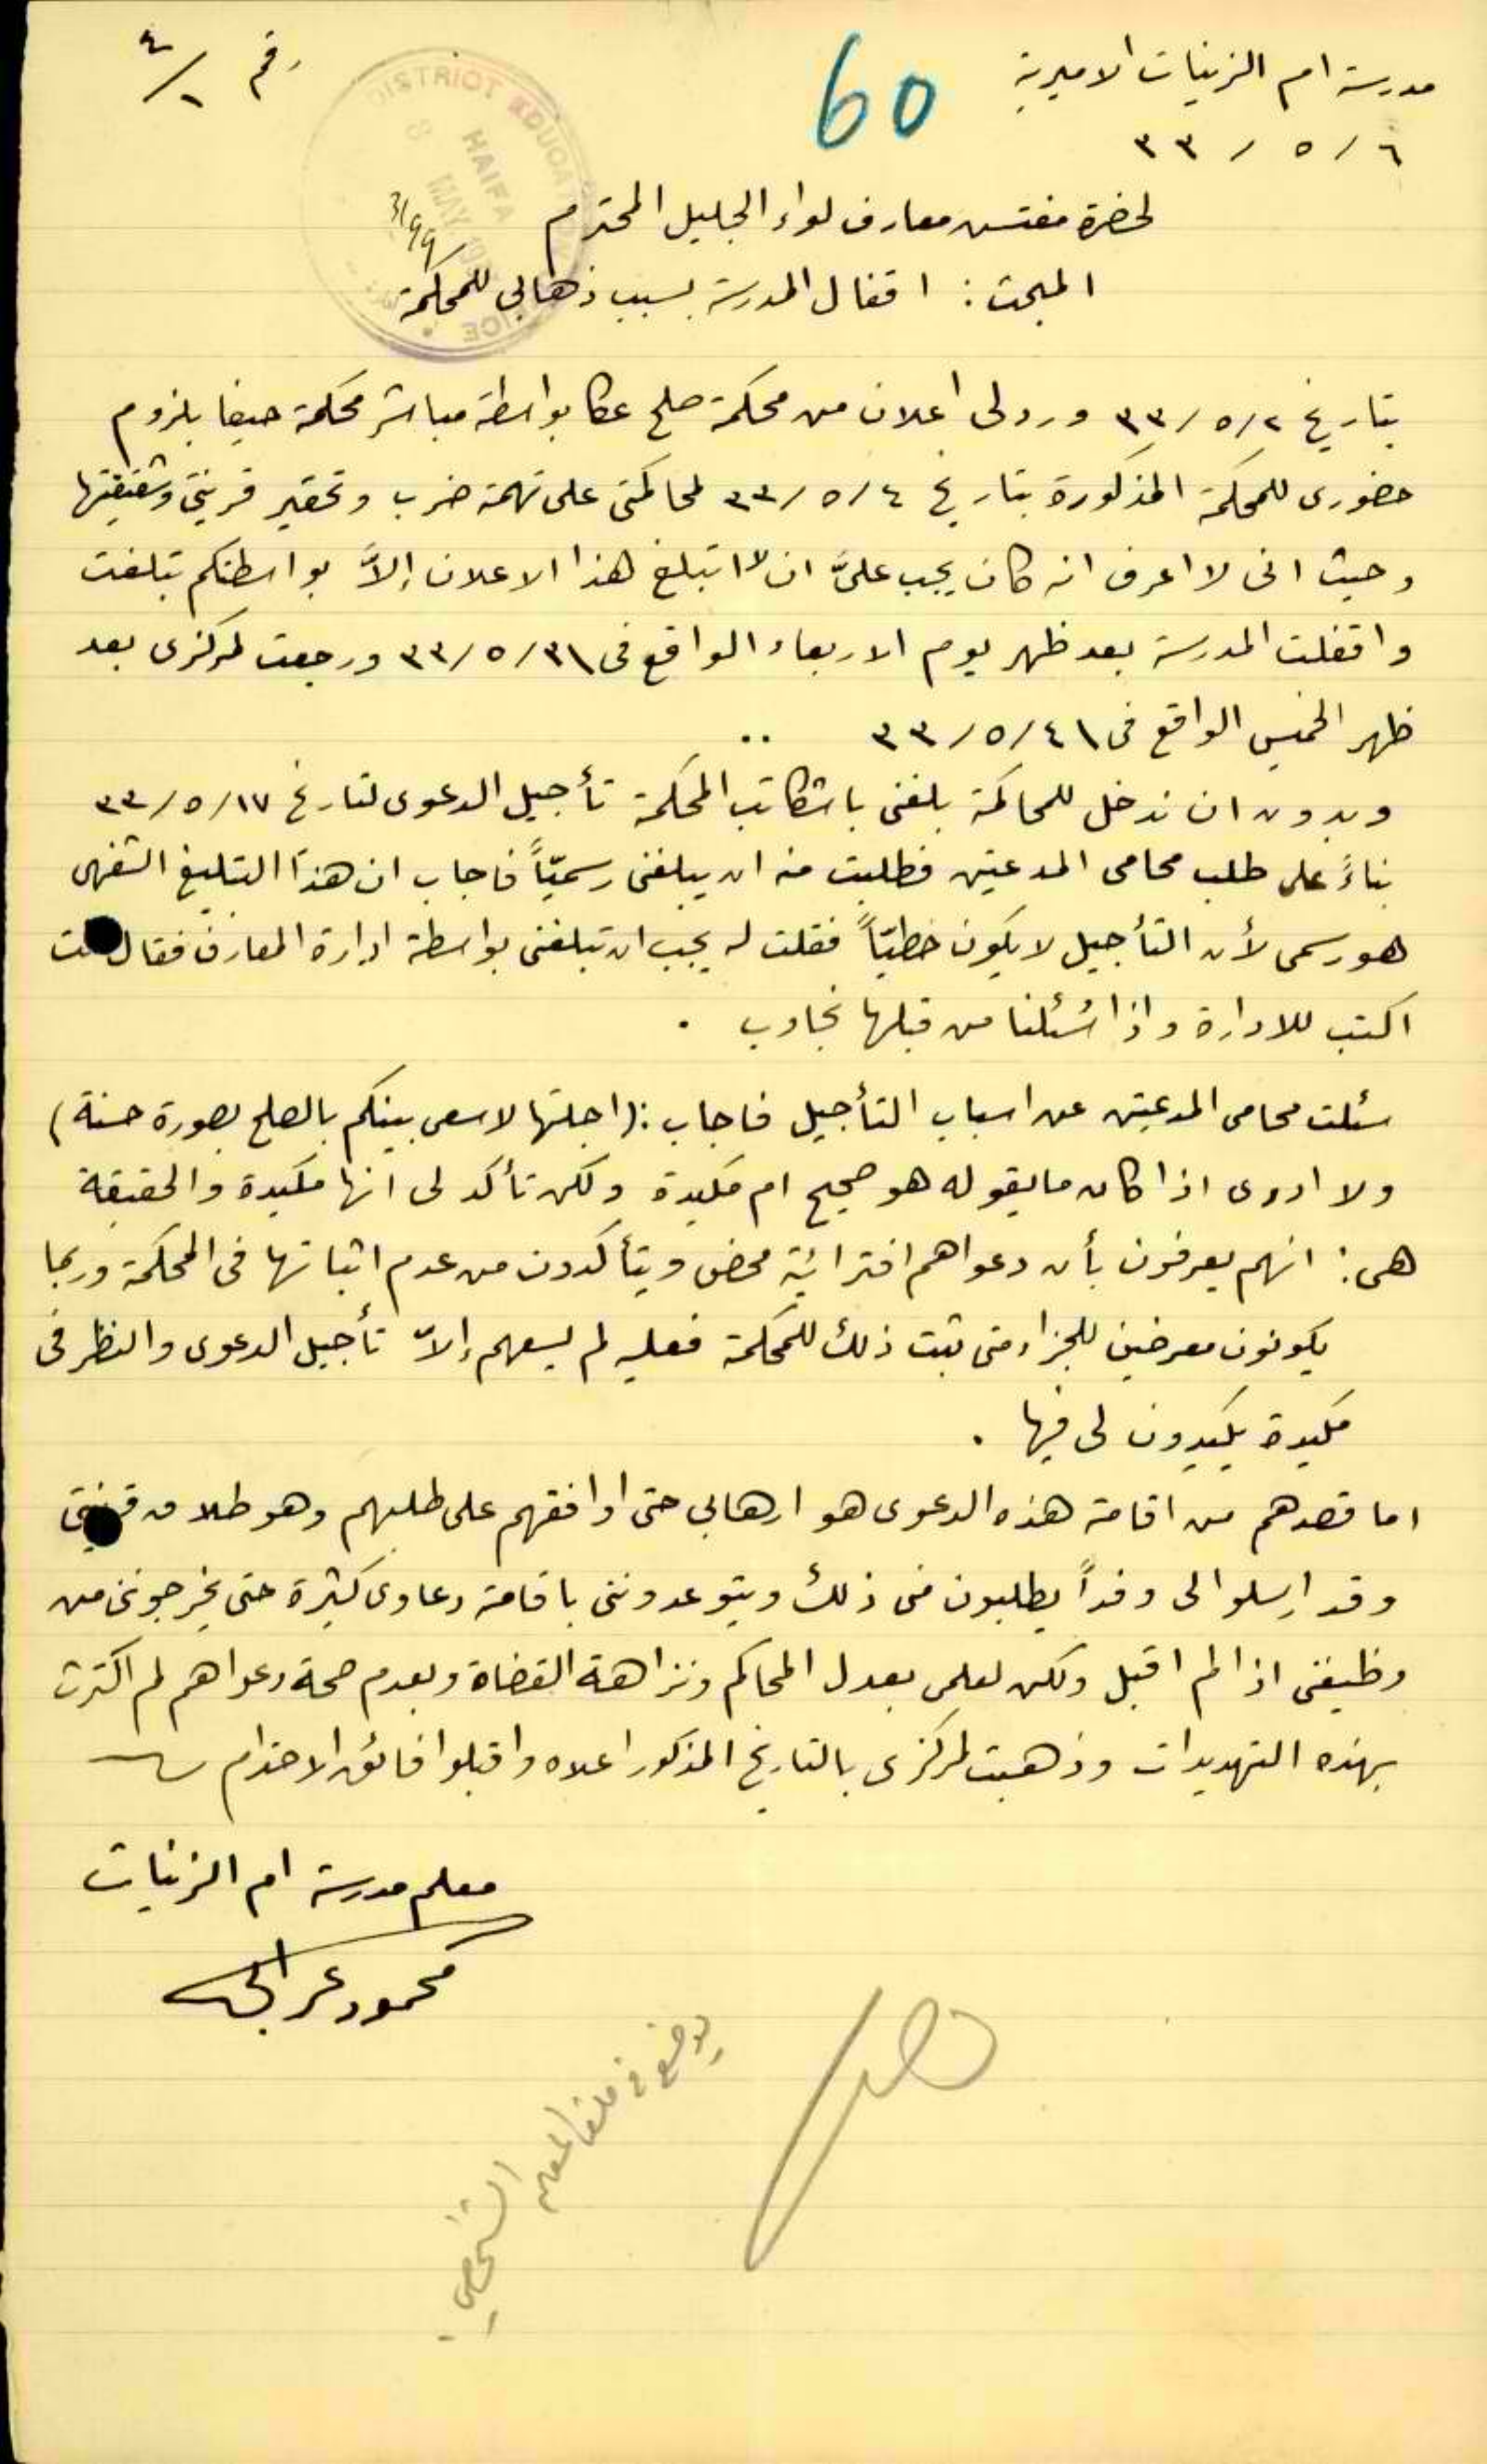 مدرسة ام الزينات الاميرية
٦ / ٥ / ٣٣
60
رقم ١/٤
DISTRICT EDUCATION OFFICE
HAIFA
8 MAY
لحضرة مفتش معارف لواء الجليل المحترم
3/99
المبحث : اقفال المدرسة بسبب ذهابي للمحكمة
بتاريخ ٢/٥/٣٣ ورد لى اعلان من محكمة صلح عكا بواسطة مباشر محكمة حيفا بلزوم
حضورى للمحكمة المذكورة بتاريخ ٤/٥/٣٣ لمحاكمتى على تهمة ضرب وتحقير قرينتي وشقيقتها
وحيث انى لا اعرف انه كان يجب علىَّ ان لا اتبلغ هذا الاعلان إلاَّ بواسطتكم تبلغت
واقفلت المدرسة بعد ظهر يوم الاربعاء الواقع فى ٣/٥/٣٣ ورجعت لمركزى بعد
ظهر الخميس الواقع فى ٤/٥/٣٣ ..
وبدون ان ندخل للمحاكمة بلغنى باشكاتب المحكمة تأجيل الدعوى لتاريخ ١٧/٥/٣٣
بناءً على طلب محامى المدعين فطلبت منه ان يبلغنى رسميّاً فاجاب ان هذا التبليغ الشفهى
هو رسمى لأن التأجيل لا يكون خطيّاً فقلت له يجب ان تبلغنى بواسطة ادارة المعارف فقال
اكتب للادارة واذا سُئلنا من قبلها نجاوب .
سئلت محامى المدعين عن اسباب التأجيل فاجاب : (اجلتها لاسعى بينكم بالصلح بصورة حسنة)
ولا ادرى اذا كان ما يقوله هو صحيح ام مكيدة ولكن تأكد لى انها مكيدة والحقيقة
هى : انهم يعرفون بأن دعواهم افترائية محض ويتأكدون من عدم اثباتها فى المحكمة وربما
يكونون معرضين للجزاء متى ثبت ذلك للمحكمة فعليه لم يسعهم إلاّ تأجيل الدعوى والنظر فى
مكيدة يكيدون لى فيها .
اما قصدهم من اقامة هذه الدعوى هو ارهابي حتى اوافقهم على طلبهم وهو طلاق قرينتي
وقد ارسلوا لى وفداً يطلبون منى ذلك ويتوعدوننى باقامة دعاوى كثيرة حتى يخرجوننى من
وظيفتى اذا لم اقبل ولكن لعلمى بعدل المحاكم ونزاهة القضاة وبعدم صحة دعواهم لم اكترث
بهذه التهديدات وذهبت لمركزى بالتاريخ المذكور اعلاه واقبلوا فائق الاحترام
معلم مدرسة ام الزينات
محمود
يوضع في ملف المعلم
الشخصي .